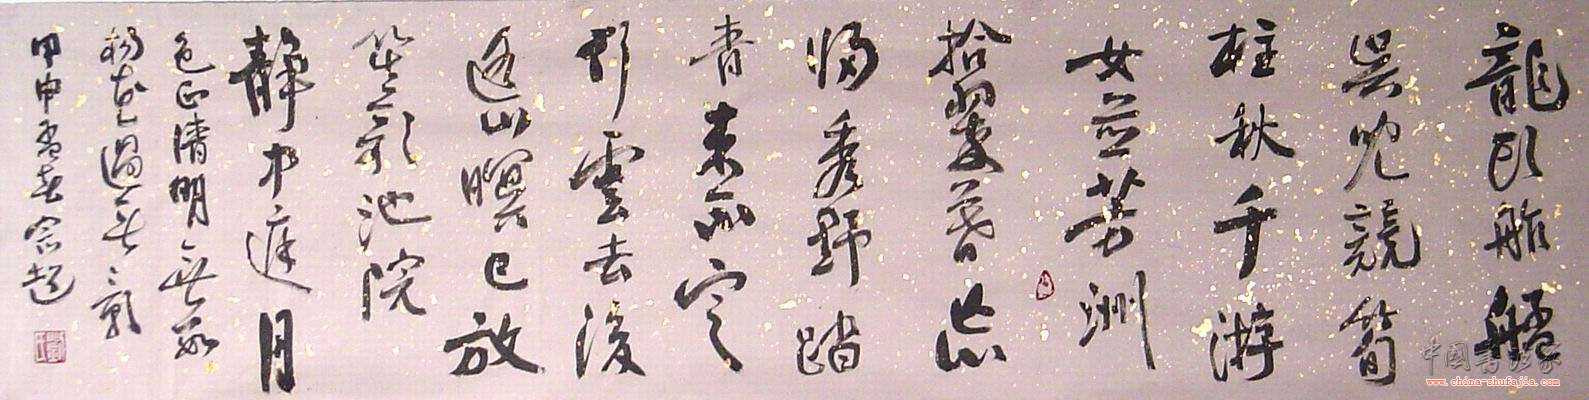 龍頭舴艋
吳兒競筍
柱秋千游
女並芳洲
拾翠暮忘
歸秀野踏
青來不定
行雲去後
遙山暝已放
笙歌池院
靜中庭月
色正清明無數
楊花過無影
甲申春
中国书法家
www.china-shufajia.com